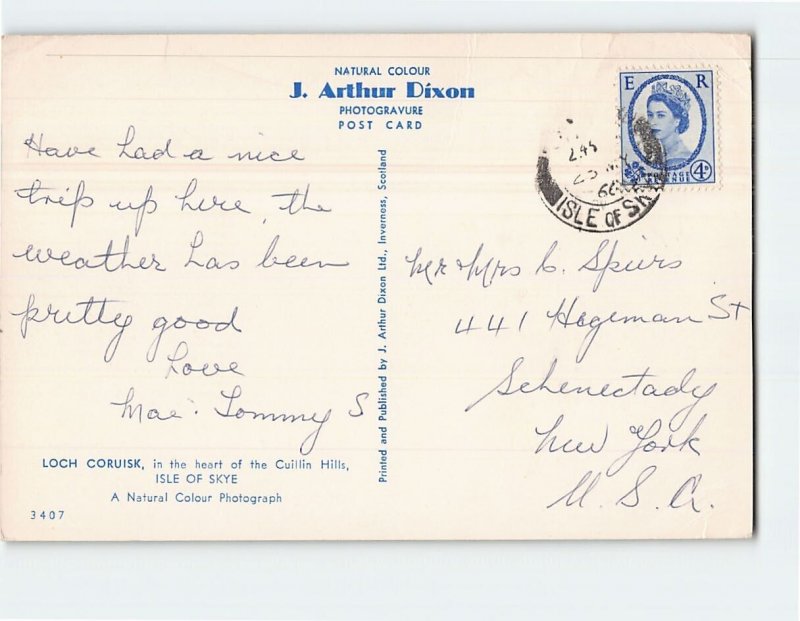 NATURAL COLOUR
J. Arthur Dixon
PHOTOGRAVURE
POST CARD
E R
POSTAGE
4D
2.45
ISLE OF SKYE
Have had a nice
trip up here, the
weather has been
pretty good
Love
Mae. Tommy S
Printed and Published by J. Arthur Dixon Ltd., Inverness, Scotland
Mr & Mrs C. Spiers
441 Hegeman St
Schenectady
New York
U. S. A.
LOCH CORUISK, in the heart of the Cuillin Hills,
ISLE OF SKYE
A Natural Colour Photograph
3407